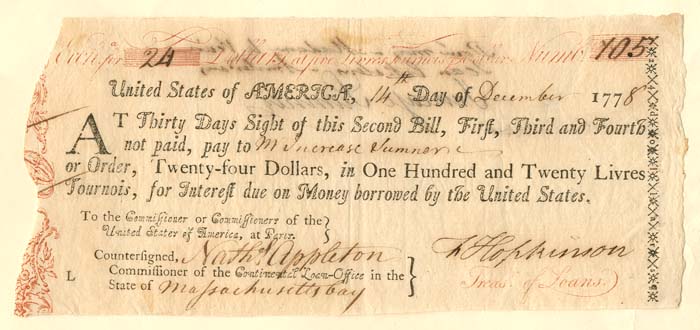 Excha. for 24 Dollars, at five Livres Tournois per dollar Numb. 105
United States of AMERICA, 14th Day of December 1778
AT Thirty Days Sight of this Second Bill, First, Third and Fourth
not paid, pay to M Increase Sumner
or Order, Twenty-four Dollars, in One Hundred and Twenty Livres
Tournois, for Interest due on Money borrowed by the United States.
To the Commissioner or Commissioners of the
United States of America, at Paris.
Countersigned, Nathl. Appleton
Commissioner of the Continental Loan-Office in the
L State of Massachusetts bay
F Hopkinson
Treas. of Loans.